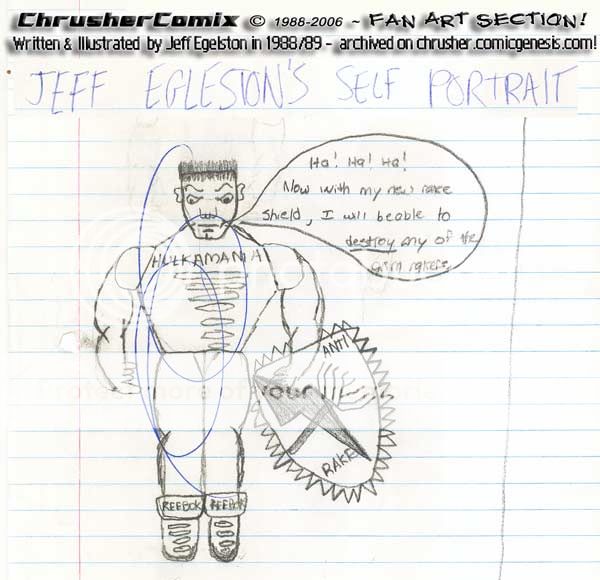 ChrusherComix © 1988-2006 ~ FAN ART SECTION!
Written & Illustrated by Jeff Egelston in 1988/89 - archived on chrusher.comicgenesis.com!
JEFF EGLESTON'S SELF PORTRAIT
Ha! Ha! Ha!
Now with my new rake
Shield, I will beable to
destroy any of the
rakers.
HULKAMANIA
ANTI
your
RAKE
REEBOK REEBOK